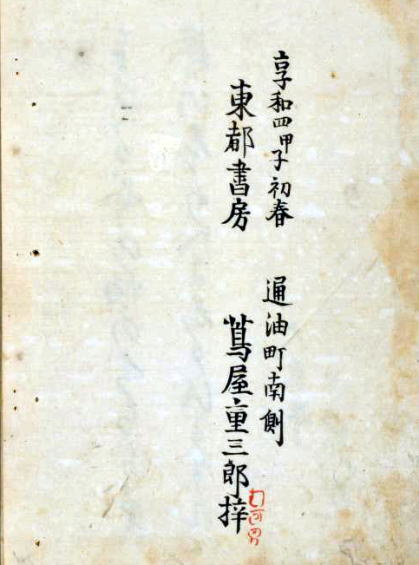 享和四甲子初春　通油町南側
東都書房　蔦屋重三郎梓